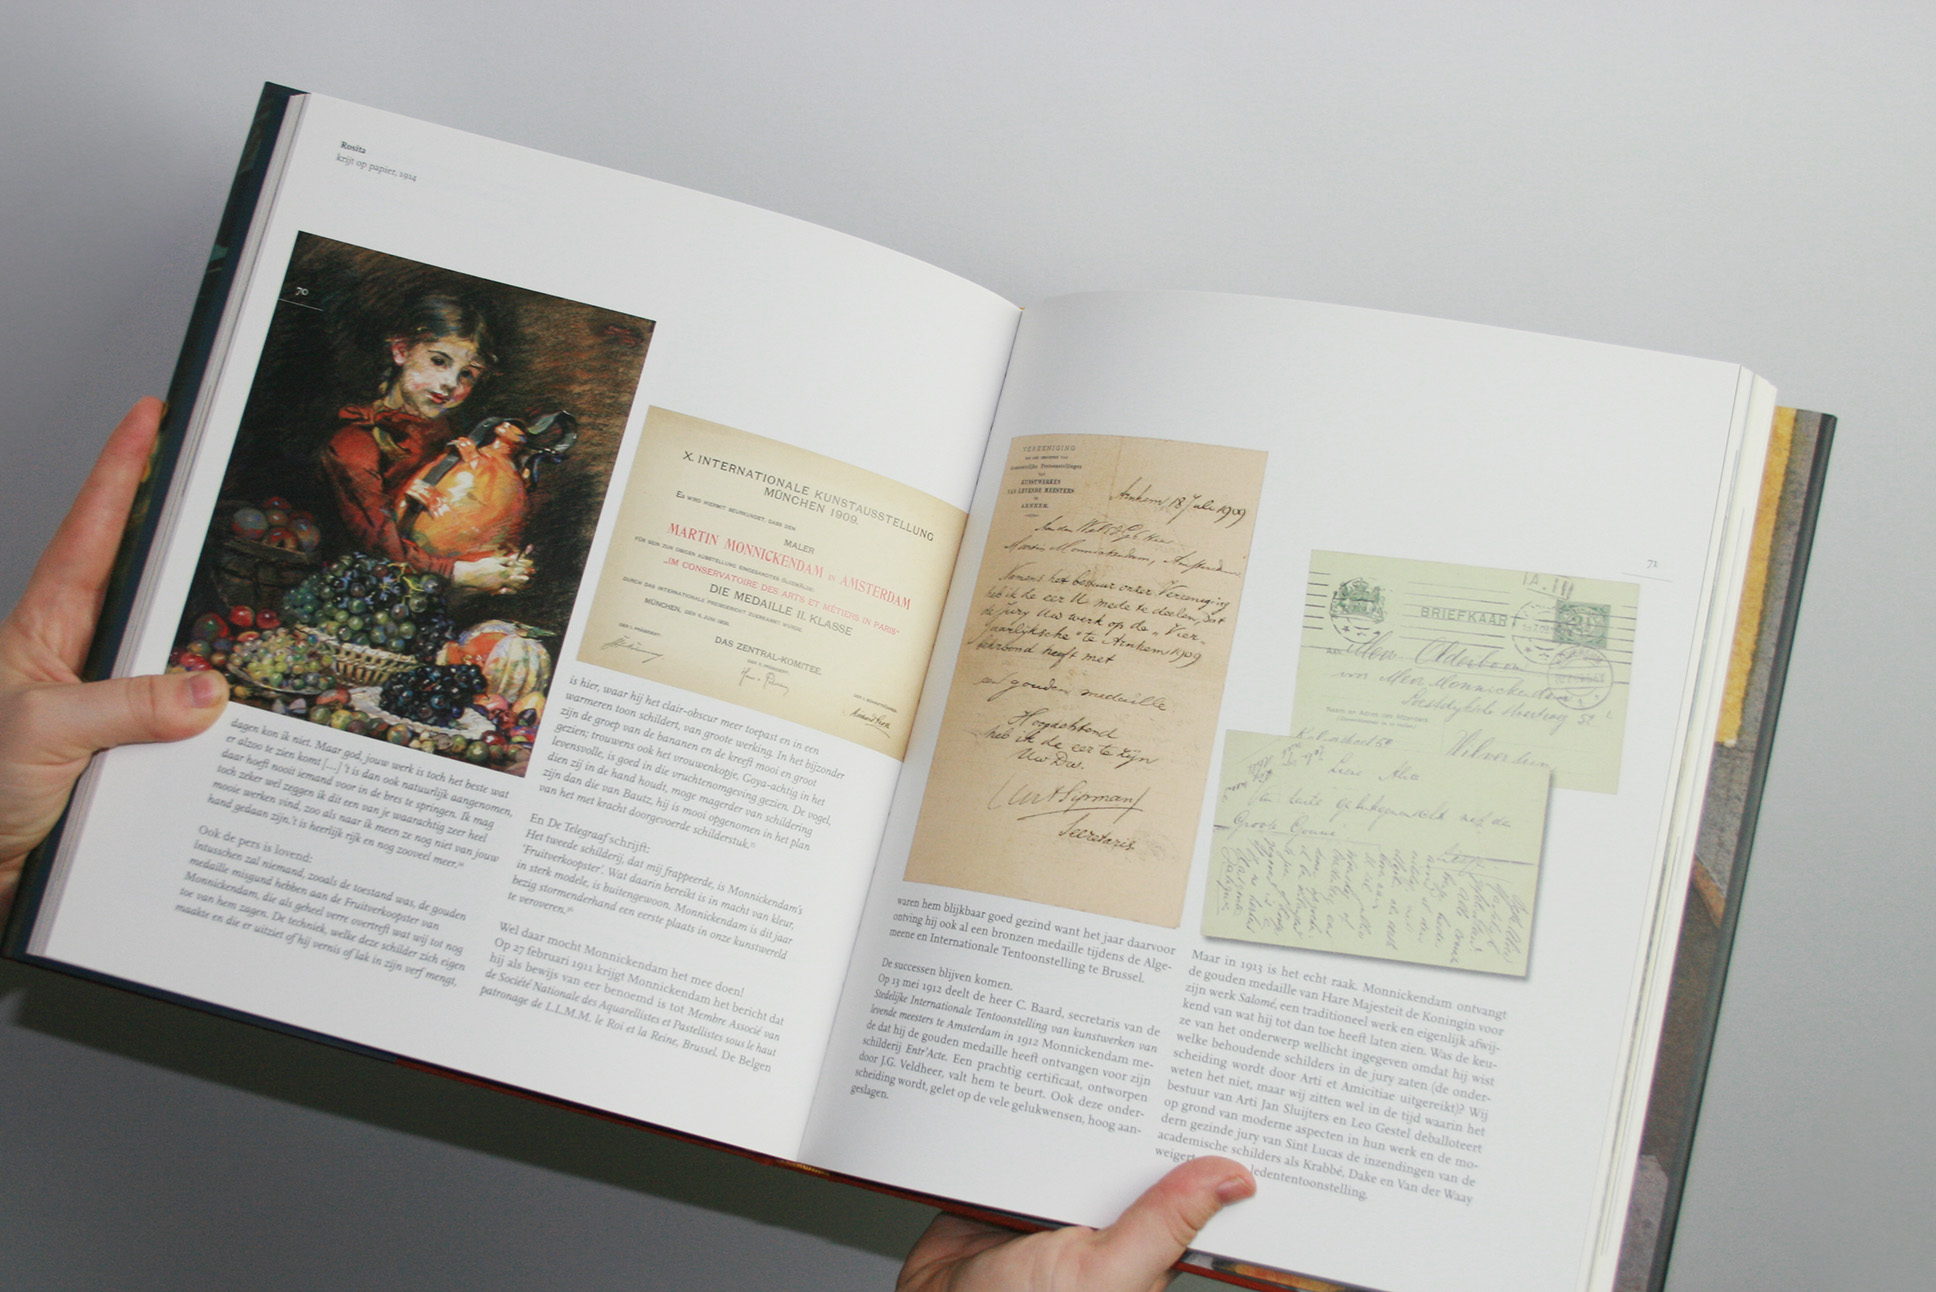 Rosita
krijt op papier, 1914
70
X. INTERNATIONALE KUNSTAUSSTELLUNG
MÜNCHEN 1909.
ES WIRD HIERMIT BEURKUNDET, DASS DEM
MALER
MARTIN MONNICKENDAM IN AMSTERDAM
FÜR SEIN ZUR OBIGEN AUSSTELLUNG EINGESANDTES ÖLGEMÄLDE:
„IM CONSERVATOIRE DES ARTS ET MÉTIERS IN PARIS"
DURCH DAS INTERNATIONALE PREISGERICHT ZUERKANNT WURDE.
DIE MEDAILLE II. KLASSE
MÜNCHEN, DEN
DAS ZENTRAL-KOMITEE.
DER I. PRÄSIDENT:
dagen kon ik niet. Maar god, jouw werk is toch het beste wat
er alzoo te zien komt [...] 't is dan ook natuurlijk aangenomen,
daar hoeft nooit iemand voor in de bres te springen. Ik mag
toch zeker wel zeggen ik dit een van je waarachtig zeer heel
mooie werken vind, zoo als naar ik meen ze nog niet van jouw
hand gedaan zijn, 't is heerlijk rijk en nog zooveel meer.
Ook de pers is lovend:
Intusschen zal niemand, zooals de toestand was, de gouden
medaille misgund hebben aan de Fruitverkoopster van
Monnickendam, die als geheel verre overtreft wat wij tot nog
toe van hem zagen. De techniek, welke deze schilder zich eigen
maakte en die er uitziet of hij vernis of lak in zijn verf mengt,
is hier, waar hij het clair-obscur meer toepast en in een
warmeren toon schildert, van groote werking. In het bijzonder
zijn de groep van de bananen en de kreeft mooi en groot
gezien; trouwens ook het vrouwenkopje, Goya-achtig in het
levensvolle, is goed in die vruchtenomgeving gezien. De vogel,
dien zij in de hand houdt, moge magerder van schildering
zijn dan die van Bautz, hij is mooi opgenomen in het plan
van het met kracht doorgevoerde schilderstuk.
En De Telegraaf schrijft:
Het tweede schilderij, dat mij frappeerde, is Monnickendam's
'Fruitverkoopster'. Wat daarin bereikt is in macht van kleur,
in sterk modele, is buitengewoon. Monnickendam is dit jaar
bezig stormenderhand een eerste plaats in onze kunstwereld
te veroveren.
Wel daar mocht Monnickendam het mee doen!
Op 27 februari 1911 krijgt Monnickendam het bericht dat
hij als bewijs van eer benoemd is tot Membre Associé van
de Société Nationale des Aquarellistes et Pastellistes sous le haut
patronage de L.L.M.M. le Roi et la Reine, Brussel. De Belgen
VEREENIGING
KUNSTWERKEN
VAN LEVENDE MEESTERS
ARNHEM.
Arnhem, 18 Juli 1909
Martin Monnickendam, Amsterdam
Namens het bestuur onzer Vereeniging
heb ik de eer U mede te deelen, dat
de Jury Uw werk op de „Vier-
jaarlijksche" te Arnhem 1909
bekroond heeft met
een gouden medaille
Hoogachtend
heb ik de eer te zijn
Uw Dw.
Secretaris.
71
BRIEFKAART
Lieve Alice
waren hem blijkbaar goed gezind want het jaar daarvoor
ontving hij ook al een bronzen medaille tijdens de Alge-
meene en Internationale Tentoonstelling te Brussel.
De successen blijven komen.
Op 13 mei 1912 deelt de heer C. Baard, secretaris van de
Stedelijke Internationale Tentoonstelling van kunstwerken van
levende meesters te Amsterdam in 1912 Monnickendam me-
de dat hij de gouden medaille heeft ontvangen voor zijn
schilderij Entr'Acte. Een prachtig certificaat, ontworpen
door J.G. Veldheer, valt hem te beurt. Ook deze onder-
scheiding wordt, gelet op de vele gelukwensen, hoog aan-
geslagen.
Maar in 1913 is het echt raak. Monnickendam ontvangt
de gouden medaille van Hare Majesteit de Koningin voor
zijn werk Salomé, een traditioneel werk en eigenlijk afwij-
kend van wat hij tot dan toe heeft laten zien. Was de keu-
ze van het onderwerp wellicht ingegeven omdat hij wist
welke behoudende schilders in de jury zaten (de onder-
scheiding wordt door Arti et Amicitiae uitgereikt)? Wij
weten het niet, maar wij zitten wel in de tijd waarin het
bestuur van Arti Jan Sluijters en Leo Gestel deballoteert
op grond van moderne aspecten in hun werk en de mo-
dern gezinde jury van Sint Lucas de inzendingen van de
academische schilders als Krabbé, Dake en Van der Waay
weigert ledententoonstelling.